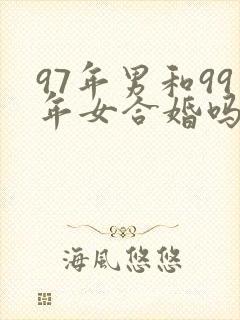 97年男和99
年女合婚吗
海風悠悠